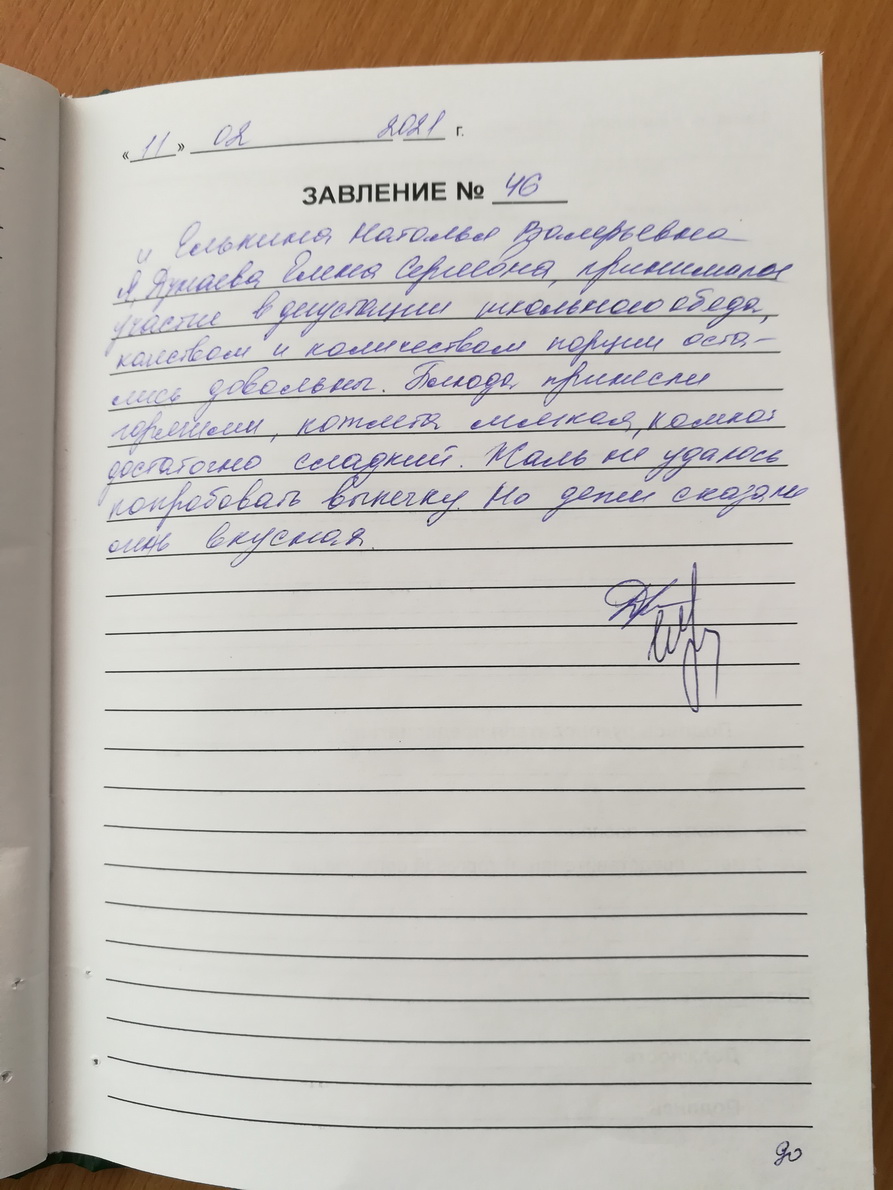 «11» 02 2021 г.
ЗАВЛЕНИЕ № 46
и Елькина Наталья Валерьевна
Я, Елена Сергеевна, принимали
участие в дегустации школьного обеда,
качеством и количеством порции оста-
лись довольны. Блюда принесли
горячими, котлета мягкая, компот
достаточно сладкий. Жаль не удалось
попробовать выпечку. Но дети сказали
очень вкусная.
90